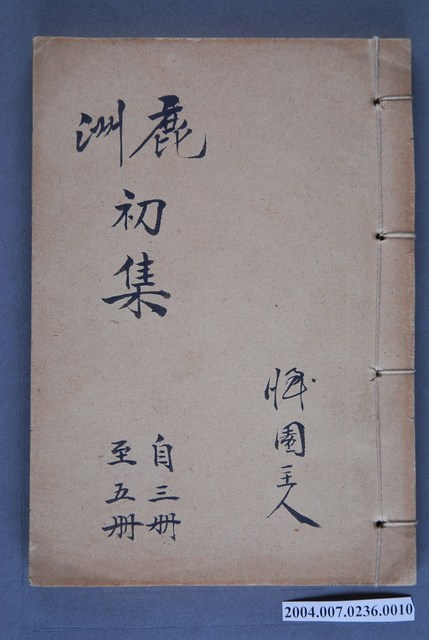 鹿洲
初
集
園主人
自三冊
至五冊
2004.007.0236.0010